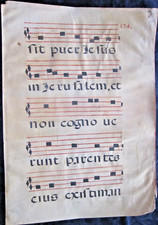 sit puer Iesus
in Ierusalem, et
non cogno ue
runt parentes
eius existiman